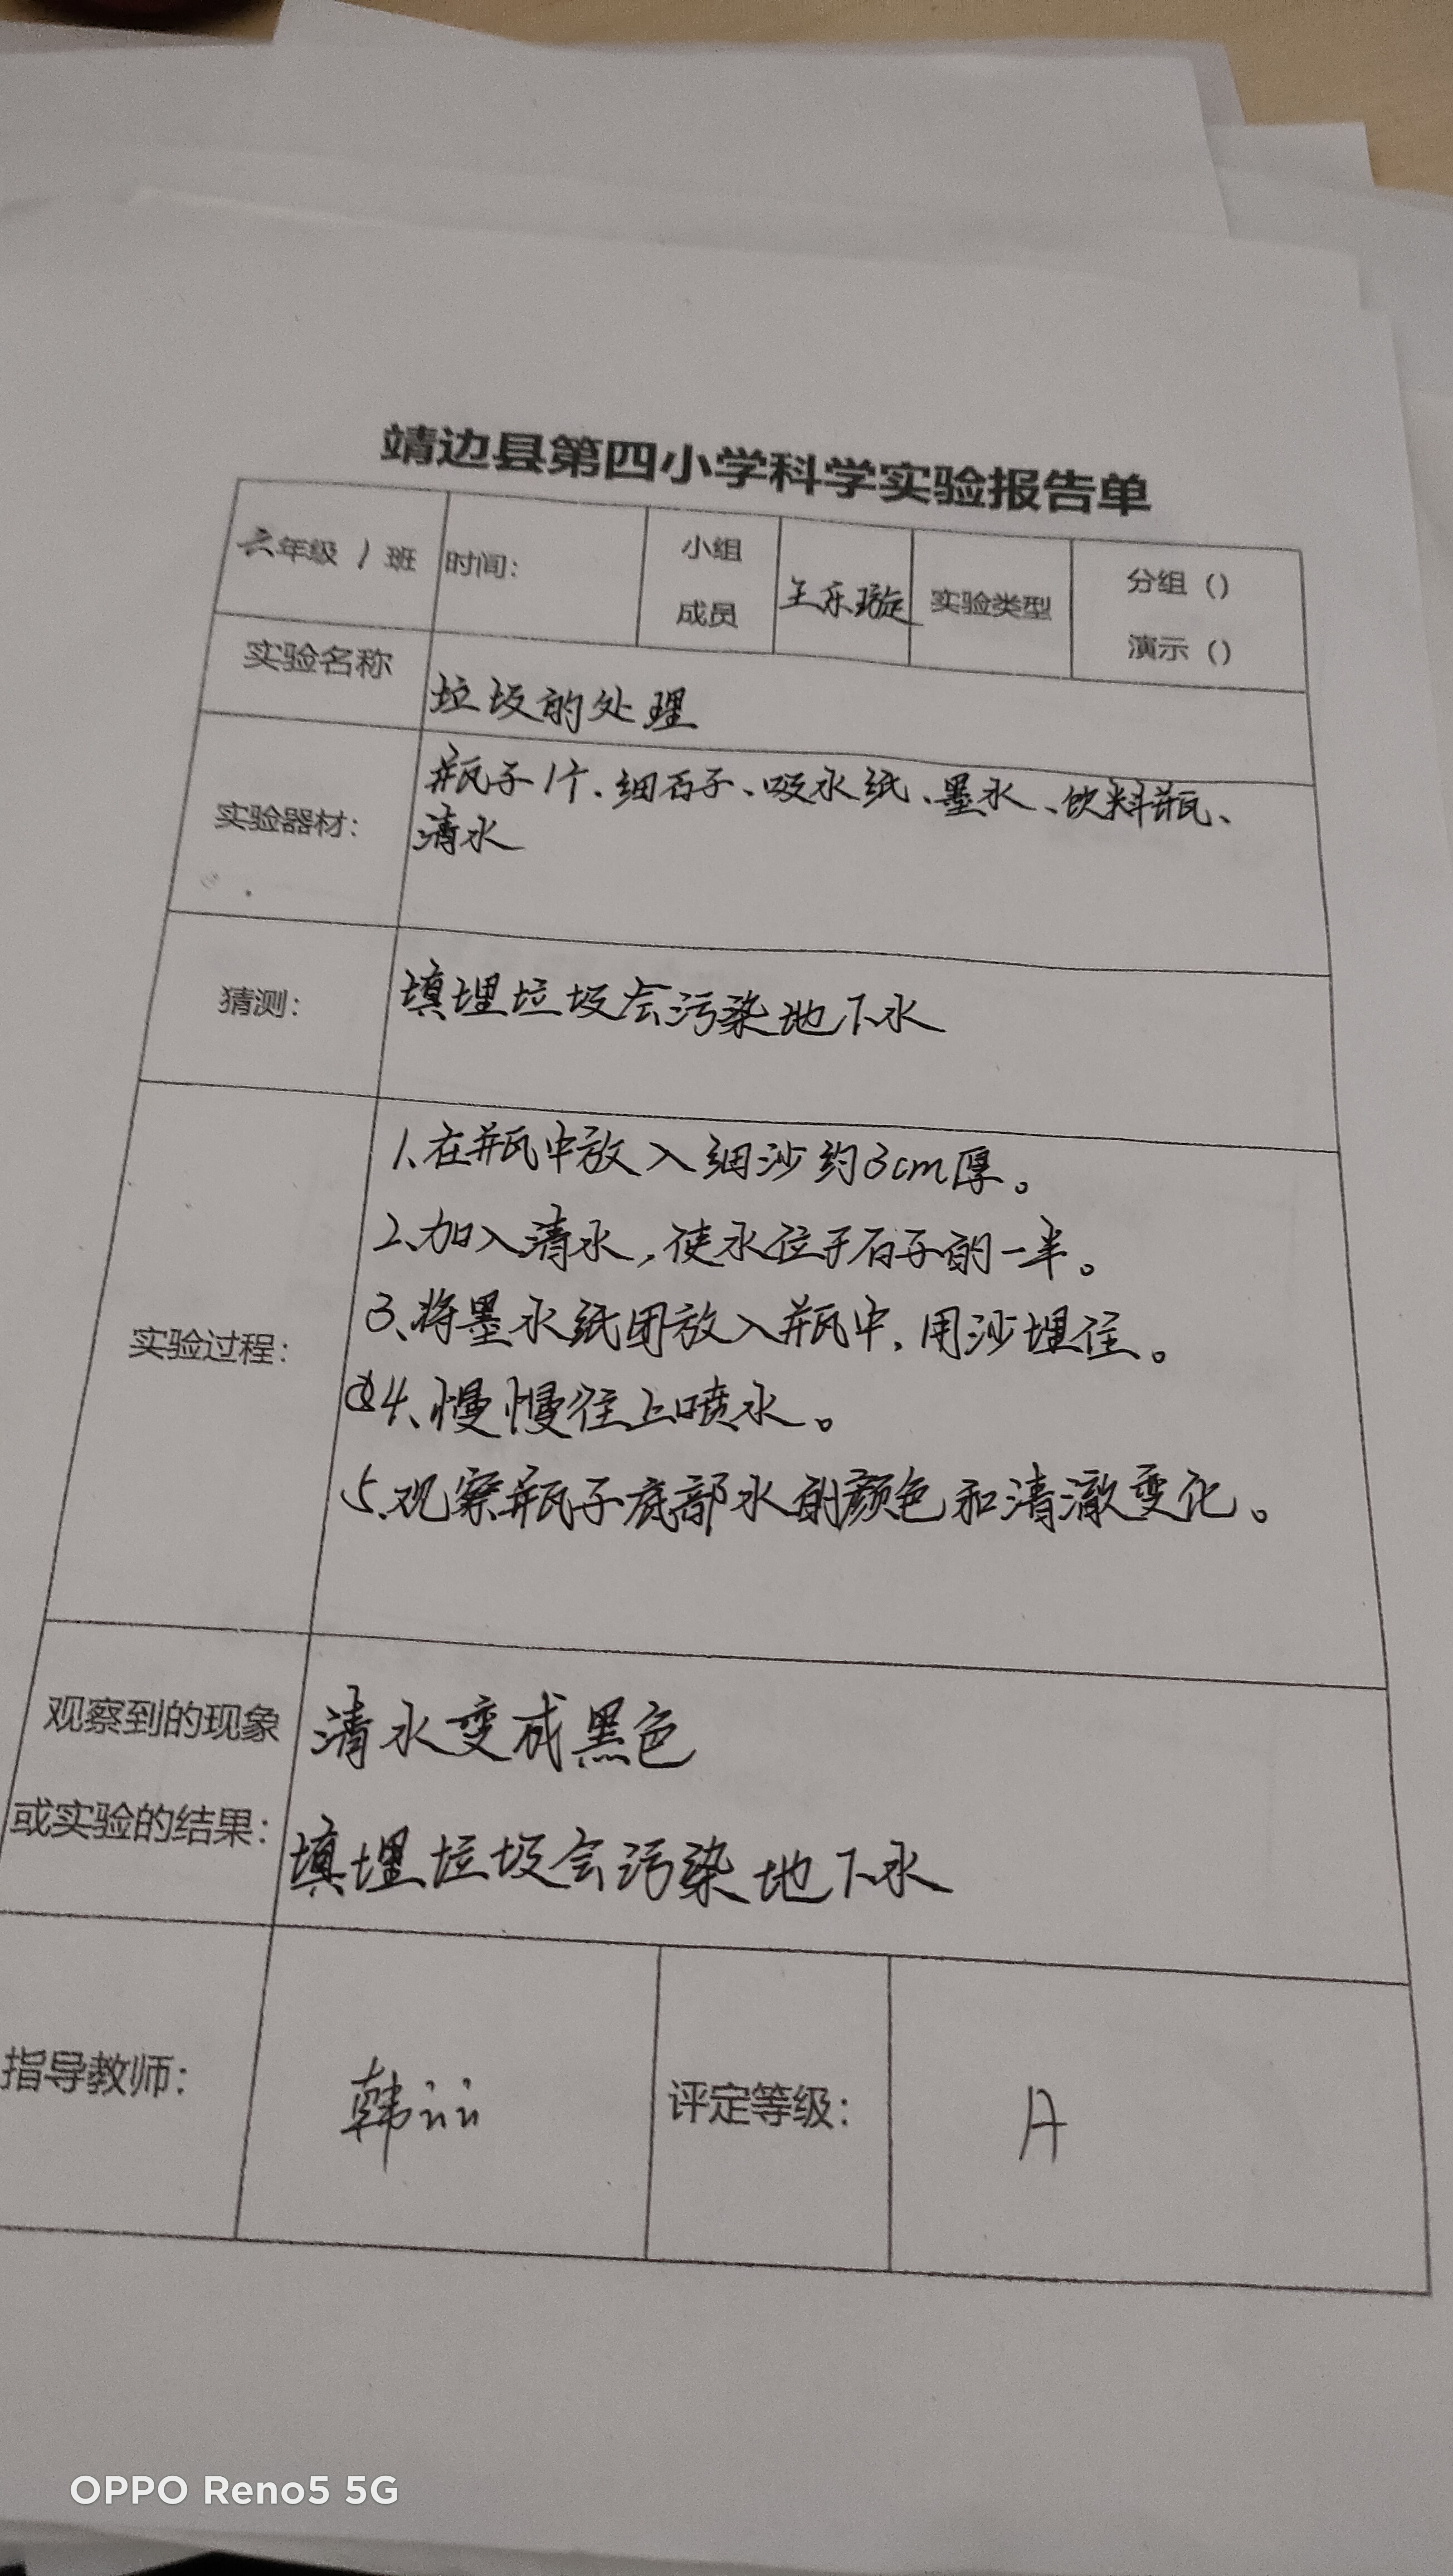 靖边县第四小学科学实验报告单
六年级 1 班 时间: 小组成员 王乐璇 实验类型 分组（） 演示（）
实验名称 垃圾的处理
实验器材: 瓶子1个、细石子、吸水纸、墨水、饮料瓶、
清水
猜测: 填埋垃圾会污染地下水
实验过程:
1、在瓶中放入细沙约3cm厚。
2、加入清水,使水位于石子的一半。
3、将墨水纸团放入瓶中,用沙埋住。
4、慢慢往上喷水。
5、观察瓶子底部水的颜色和清澈变化。
观察到的现象 清水变成黑色
或实验的结果: 填埋垃圾会污染地下水
指导教师: 韩 评定等级: A
OPPO Reno5 5G